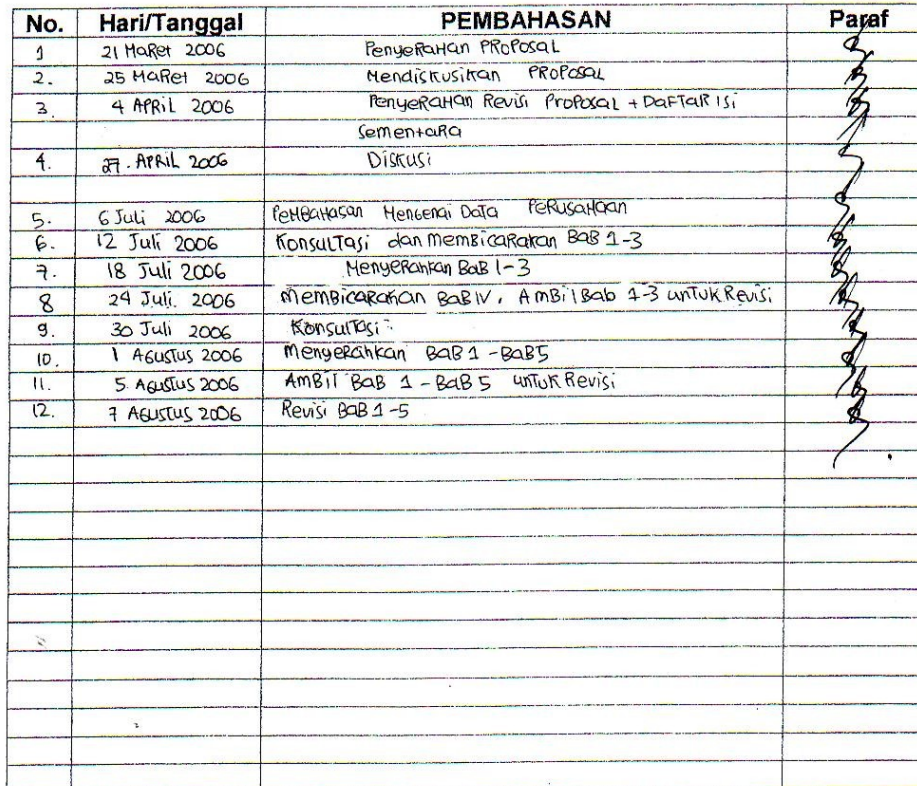 No. Hari/Tanggal PEMBAHASAN Paraf
1 21 Maret 2006 Penyerahan Proposal
2. 25 Maret 2006 Mendiskusikan Proposal
3. 4 April 2006 Penyerahan Revisi Proposal + Daftar Isi
Sementara
4. 27. April 2006 Diskusi
5. 6 Juli 2006 Pembahasan Mengenai Data Perusahaan
6. 12 Juli 2006 Konsultasi dan membicarakan Bab 1-3
7. 18 Juli 2006 Menyerahkan Bab 1-3
8 24 Juli. 2006 Membicarakan Bab IV, Ambil Bab 1-3 untuk Revisi
9. 30 Juli 2006 Konsultasi
10. 1 Agustus 2006 Menyerahkan Bab 1 - Bab 5
11. 5 Agustus 2006 Ambil Bab 1 - Bab 5 untuk Revisi
12. 7 Agustus 2006 Revisi Bab 1-5